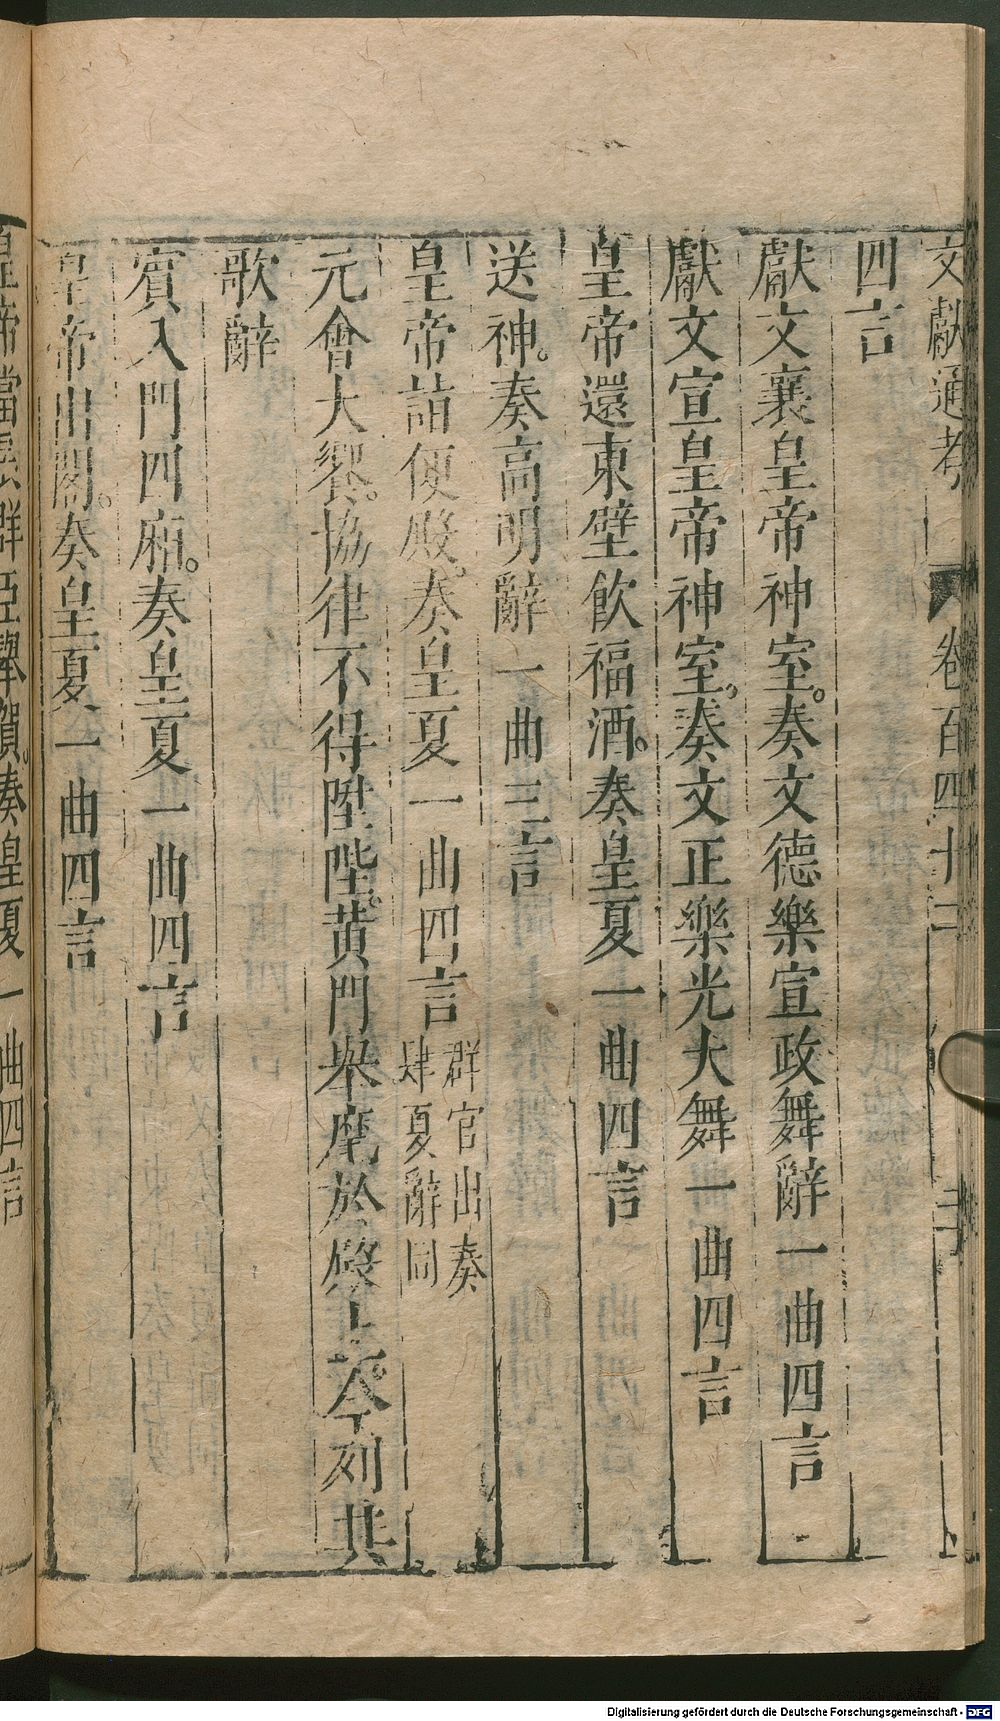 文獻通考 卷百四十二
四言
獻文襄皇帝神室。奏文德樂宣政舞辭一曲四言
獻文宣皇帝神室。奏文正樂光大舞一曲四言
皇帝還東壁飲福酒。奏皇夏一曲四言
送神。奏高明辭一曲三言
皇帝詣便殿。奏皇夏一曲四言 群官出奏
肆夏辭同
元會大饗。協律不得陞陛。黄門舉麾於殿上。今列其
歌辭
賓入門四廂。奏皇夏一曲四言
皇帝出閤。奏皇夏一曲四言
皇帝當扆群臣舉賀。奏皇夏一曲四言
Digitalisierung gefördert durch die Deutsche Forschungsgemeinschaft - DFG